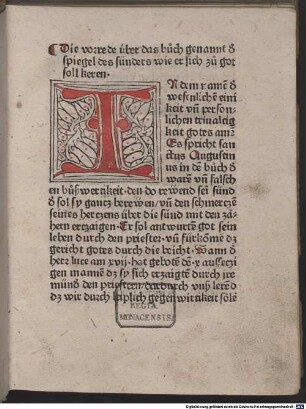 Die vorrede über das bůch genannt d̕
spiegel des sünders wie er sich zů got
soll keren.
IN dem namē d̕
wesenlichē eini
keit vn̄ person-
lichen triualtig
keit gotes amē
Es spricht san
ctus Augustin
us in dē bůch d̕
warē vn̄ falsch
en bůßwertikeit. den do rewend sei sünd
d̕ sol sy gancz berewen/ vn̄ den schmerczē
seines herczens über die sünd mit den zä-
hern erczaigen. Er sol antwurtē got sein
leben durch den priester. vn̄ fürkōmē dz
gericht gotes durch die beicht. Wann d̕
herr luce am xvij. hat gebotē dē
man dz sy sich erzaigtē durch
mūnd den priestern. dardurch vnß lerēd
dz wir durch leiplich gegenwirtikeit sölē
REGIA
MONACENSIS.